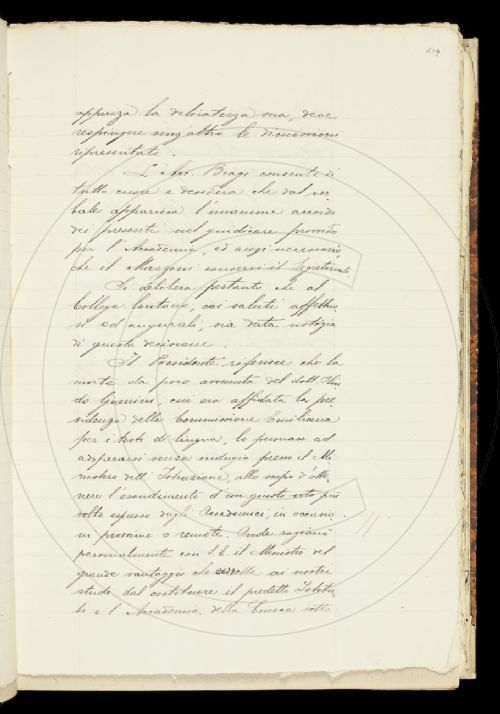 219
apprezza la delicatezza sua, deve
respingere senz'altro le dimissioni
ripresentate.
L'Acc. Biagi consente di
tutto cuore e desidera che dal ver-
bale apparisca l'unanime accordo
dei presenti nel giudicare provvido
per l'Accademia, ed anzi necessario,
che il Mazzoni conservi il Segretariato.
Si delibera pertanto che al
Collega lontano, coi saluti affettuo-
si ed augurali, sia data notizia
di questa decisione.
Il Presidente riferisce che la
morte da poco avvenuta del dott. Olin-
do Guerrini, cui era affidata la pre-
sidenza della Commissione Emiliana
per i testi di lingua, lo persuase ad
adoperarsi senza indugio presso il Mi-
nistero dell'Istruzione, allo scopo d'otte-
nere l'esaudimento d'un questo voto più
volte espresso dagli Accademici, in occasio-
ni prossime o remote. Onde ragionò
personalmente con S. E. il Ministro del
grande vantaggio che sarebbe ai nostri
studi dal costituire il predetto Istitu-
to e l'Accademia della Crusca sotto